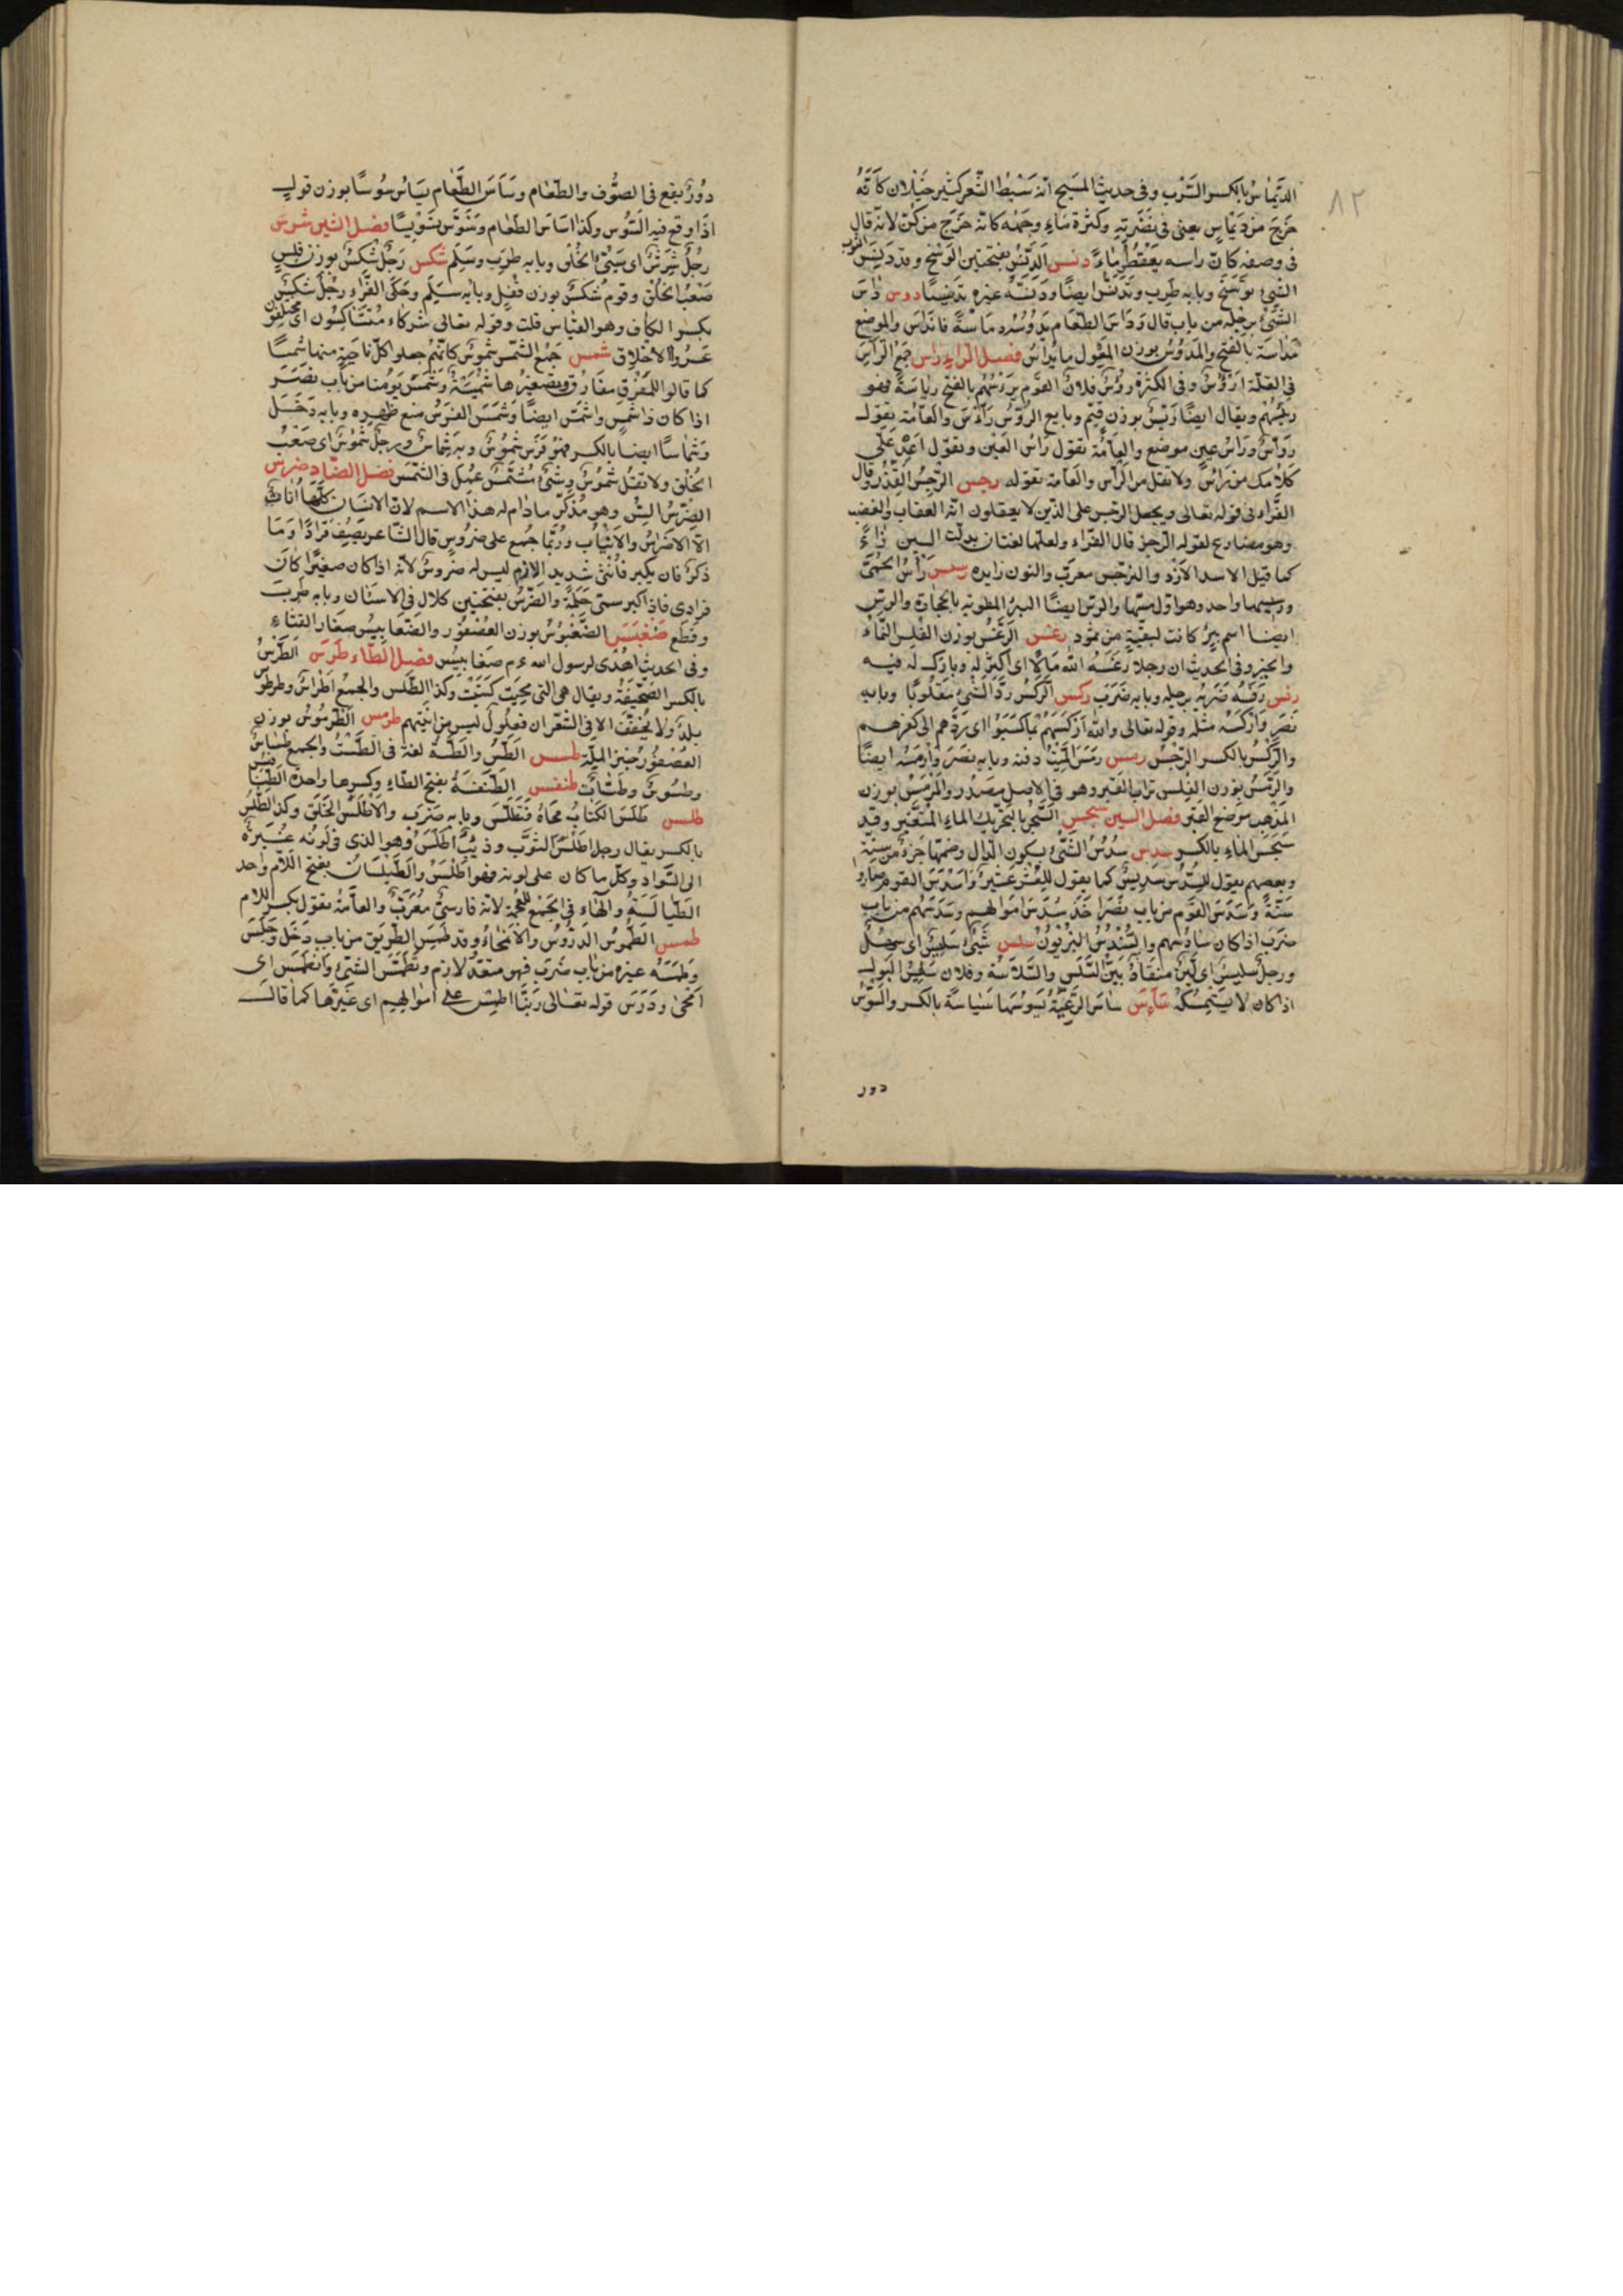 ٨٢
الدِّيماسُ بالكسر السَّرَب وفى حديث المسيح انّه سَبْطُ الشَّعر كثير خَيْلان كَأنَّهُ
خَرَجَ من دِيماسٍ يعنى فى نَضْرتِه وكثرة مَاءِ وجهه كانّه خَرَجَ من كِنّ لانّه قال
فى وصفه كانّ راسه يَقْطُر مَاءً دنس الدَّنَس بفتحتين الوَسَخ وقد دَنِسَ الثوب
الشيئ تَوَسَّخَ وبابه طَرِب وتَدَنَّس ايضًا ودَنَّسَه غيره تدنيسًا دوس داسَ
الشيئَ برجله من باب قال ودَاسَ الطعَام يَدُوسُه دِيَاسَةً فانداسَ والموضع
مَدَاسَة بالفتح والمِدْوَسُ بوزن المِقْول ما يُدَاسُ فصل الراء راس جمع الرأس
فى القلّة ارؤُسٌ وفى الكثرة رؤُسٌ فلانٌ القومَ يرَؤُسُهُم بالفتح رياسَةً فهو
رئيسُهُم ويقال ايضًا رَيِّسٌ بوزن قيّم وبايع الرؤُس رَآَّسٌ والعامّة تقول
روّاسٌ وراس عين موضع والعامّة تقول رَأس العين وتقول اعِدْ عَلَىّ
كلامك من رَأسٍ ولا تقل من الرأس والعامّة تقوله رجس الرِّجسُ القَذَر وقال
الفرّاء فى قوله تعالى ويجعل الرّجس على الذين لا يعقلون انّه العقاب والغضب
وهو مضارع لقوله الرّجز قال الفرّاء ولعلّها لغتان بدلت السين زاءً
كما قيل الاسد الازد والنرجس معرب والنون زايده رسس رَسُّ الحُمَّى
ورسيسها واحد وهو اوّل مسّها والرسّ ايضًا البئر المطويّة بالحجارة والرسّ
ايضًا اسم بئرٍ كانت لبقيّةٍ من ثمود رغس الرَّغْسُ بوزن الفَلس النّماء
والخير وفى الحديث ان رجلا رَغَسَهُ الله مَالًا اى اكثر له وبارك له فيه
رفس رَفَسَه ضَرَبَه برجله وبابه ضَرَبَ ركس الرَّكْسُ رَدُّ الشيئ مقلوبًا وبابه
نَصَرَ وَأركسَه مثله وقوله تعالى والله اَرْكَسَهُمْ بماكَسَبُوا اى رَدّهم الى كفرهم
والرِّكسُ بالكسر الرِّجْسُ رمس رَمَسَ المَيِّتَ دفنه وبابه نَصَرَ وَأرْمَسَه ايضًا
والرَّمْسُ بوزن الفلس تراب القبر وهو فى الاصل مَصْدَر والمَرْمَسُ بوزن
المَذْهَب موضع القبر فصل السين سجس السَّجَسُ بالتحريك الماء المتغيّر وقد
سَجِسَ الماء بالكسر سدس سُدُسُ الشيئ بسكون الدال وضمّها جُزءٌ من ستّة
وبعضهم يقول للسُّدْس سَدِيسٌ كما يقول للعُشْر عَشِيرٌ وَأسْدَسَ القوم صَارُوا
سِتّةً وَسَدَسَ القوم من باب نَصَرَ اخَذَ سُدْسَ امَوالهم وسَدَسَهُم من باب
ضَرَبَ اذا كان سَادسهم والسُّنْدُسُ البُزْيُونُ سلس شَيْئٌ سَلِسٌ اى سهلٌ
ورجلٌ سَلِسٌ اى لَيِّنٌ مُنْقَادٌ بَيِّنُ السَّلَسِ والسَّلاسَة وفلان سَلِسُ البَول
اذا كان لا يَسْتَمْسِكُه سَأسَ سَاسَ الرَّعيَّة يَسُوسُهَا سِيَاسَةً بالكسر والسُّوسُ
دود
دُودٌ يقع فى الصُّوف والطعَام وسَاسَ الطَّعَام يَسَاسُ سَوْسًا بوزن قول
اذا وقع فيه السُّوس وكذا اسَاسَ الطعَام وسَوَّسَ تسْوِيسًا فصل الشين شرس
رجُلٌ شَرِسٌ اى سَيِّئُ الخُلُق وبابه طَرِب وسَلِمَ شكس رجُلٌ شَكْسٌ بوزن فلسٍ
صَعْبُ الخُلُق وقومٌ شُكْسٌ بوزن قُفْلٍ وبابه سَلِمَ وحَكَى الفَرّاء رجُلٌ شَكِسٌ
بكسر الكاف وهو القياس قلت وقوله تعالى شُركَاء مُتَشَاكِسُون اى مختلفون
عَسِرُوا الاخلاق شمس جَمْعُ الشَّمس شموسٌ كانّهُم جعلوا كلّ نَاحِيَةٍ منها شَمْسًا
كما قالوا للمَفْرق مفارق وتصغيرها شُمَيْسَةٌ وشَمَسَ يَومُنا من باب نصَرَ
اذا كان ذا شمسٍ واشْمَسَ ايضًا وشَمَسَ الفرسُ منع ظهره وبابه دَخَلَ
وشِمَاسًا ايضا بالكسر فهو فرَسٌ شمُوسٌ وبه شِماسٌ ورجلٌ شَمُوسٌ اى صَعْبُ
الخُلُق ولا تقُل شَمُوصٌ وشيئٌ مُشَمَّسٌ عُمِلَ فى الشمس فصل الضّاد ضرس
الضِّرسُ السِّنُّ وهو مُذكّر مادَام له هذا الاسم لانّ الاسنان كلّها اناثٌ
الّا الاضراسَ والانيَابَ وربّما جُمع على ضروسٍ قال الشاعر يَصِفُ قُرَادًا وَمَا
ذكرٌ فان يكبر فاُنثى شديد الازم ليس له ضروسٌ لانّه اذا كان صغيرًا كان
قرادى فاذا كبر سمّى حَلَمَةً والضَّرَسُ بفتحتين كلال فى الاسنان وبابه طَرِب
وقَطَع ضغبس الضُّغبُوسُ بوزن العُصفُور والضَّغَابِيسُ صغار القِثاءِ
وفى الحديث اُهْدِىَ لرسول الله ءم ضغابيس فصل الطّاء طرس الطِّرْسُ
بالكسر الصَّحيفَةُ ويقال هى التى مُحِيَت كُتِبَتْ وكذا الطِّلس والجمعُ اَطْرَاسٌ وطرطوس
بلدٌ ولا يُخفّف الا فى الشعر ان فعلُولٌ ليس من ابنيتهم طرمس الطُّرْمُوسُ بوزن
العُصْفُور خُبز المَلَّة طسس الطَّسُّ والطَّسَّة لغة فى الطَّسْت والجمع طِسَاسٌ
وطسوسٌ وطَسَّات طنفس الطِّنْفِسَةُ بفتح الطاء وكسرها واحدة الطَّنَافِس
طلس طَلَسَ الكتَابَ مَحَاهُ فتَطَلَّسَ وبابه ضَرَبَ والأَطْلَسُ الخَلَقُ وكذا الطِّلْسُ
بالكسر يقال رجل اطْلَسُ الثوب وذئبٌ اَطْلَسُ وهو الذى فى لونه غُبْرةٌ
الى السَّواد وكلّ ما كان على لونه فهو اَطْلَسُ والطَّيْلَسَانُ بفتح اللام واحد
الطَّيَالسَة والهَاء فى الجمع للعُجْمة لانّه فارسىٌّ مُعَرَّبٌ والعامّة تقول بكسر اللام
طمس الطُّمُوسُ الدُّرُوسُ والانمحَاءُ وقد طَمَسَ الطّريق من باب دَخَلَ وجَلَسَ
وَطَمَسَه غيره من باب ضَرَب فهو متعدٍّ لازم وتَطَمَّسَ الشيئ وَانْطَمَس اى
امّحى ودَرَسَ قوله تعالى رَبَّنَا اطْمِسْ على اموالهم اى غَيِّرْها كما قال